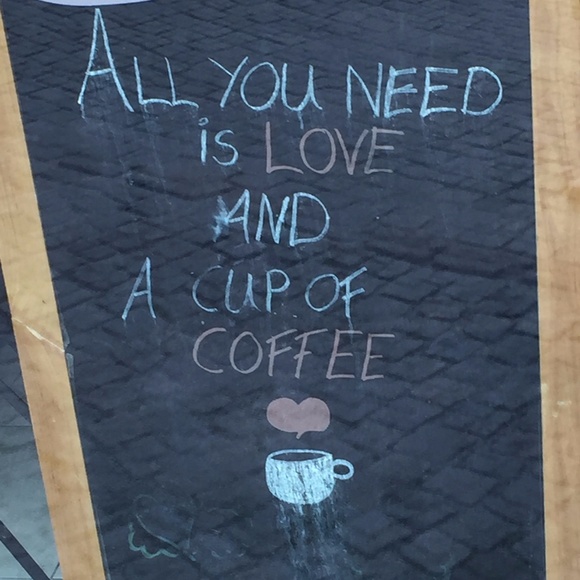 ALL YOU NEED
is LOVE
AND
A CUP OF
COFFEE